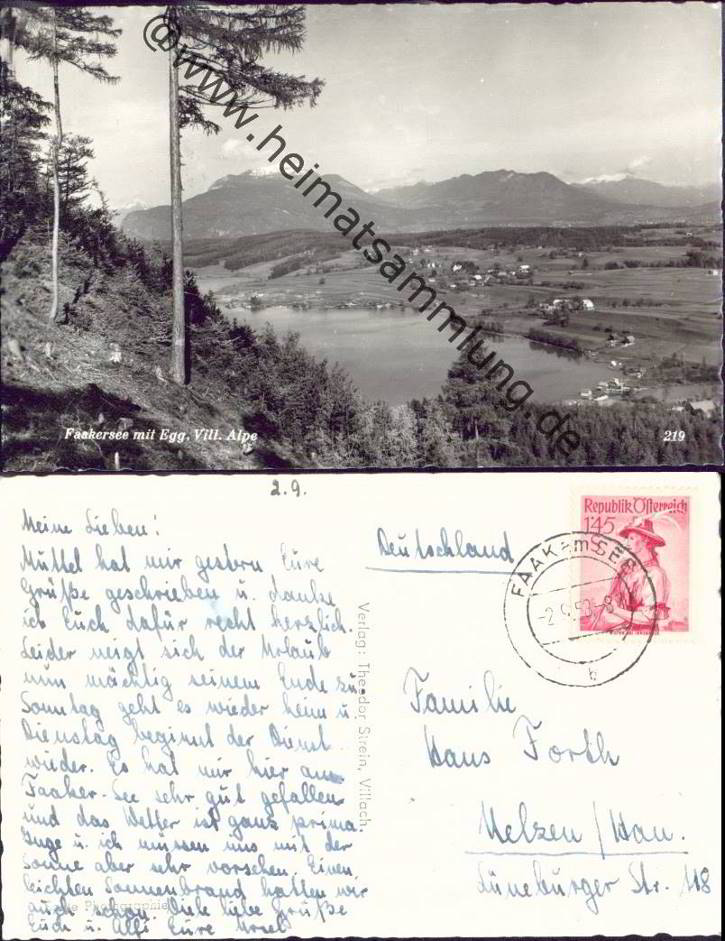 @www.heimatsammlung.de
Faakersee mit Egg, Vill. Alpe
219
2.9.
Meine Lieben!
Muttel hat mir gestern Eure
Grüße geschrieben u. danke
ich Euch dafür recht herzlich.
Leider neigt sich der Urlaub
nun mächtig seinem Ende zu
Sonntag geht es wieder heim u.
Dienstag beginnt der Dienst
wieder. Es hat mir hier am
Faaker-See sehr gut gefallen
und das Wetter ist ganz prima.
Inge u. ich müssen uns mit der
Sonne aber sehr vorsehen. Einen
leichten Sonnenbrand hatten wir
auch schon. Viele liebe Grüße
Euch u. Alfi Eure Ursel
Echte Photographie
Verlag: Theodor Strein, Villach
Deutschland
Republik Österreich
1·45
FAAK am SEE
-2.9.53-8
b
Familie
Hans Forth
Uelzen/Han.
Lüneburger Str. 118